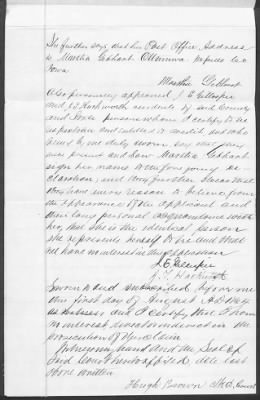 She further says that her Post Office Address
is Martha Gebhart Ottumwa Wapello Co
Iowa
Martha Gebhart
Also personally appeared J. C. Gillespie
and J. T. Hackworth residents of said County
and State persons whom I certify to be
respectable and entitled to credit and who
being by me duly sworn say that they
were present and saw Martha Gebhart
sign her name to the foregoing de
claration; and they further swear that
they have every reason to believe from
the appearance of the applicant and
their long personal acquaintance with
her, that she is the identical person
she represents herself to be and that
they have no interest in this application
J. C. Gillespie
J. T. Hackworth
Sworn to and subscribed before me
this first day of August A.D.
as witnesses and I certify that I have
no interest in the
prosecution of this claim
Witness my hand and the Seal of
said Court hereto affixed, date last
above written
Hugh Brown Court